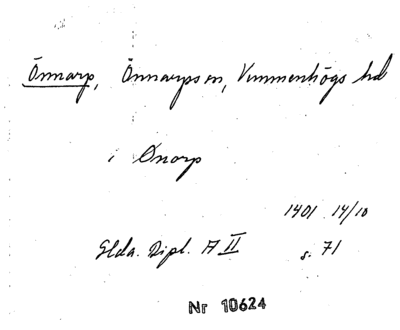 Önnarp, Önnarps sn, Vemmenhögs hd
i Ønorp
1401 14/10
Glda. Dipl. A II s. 71
Nr 10624